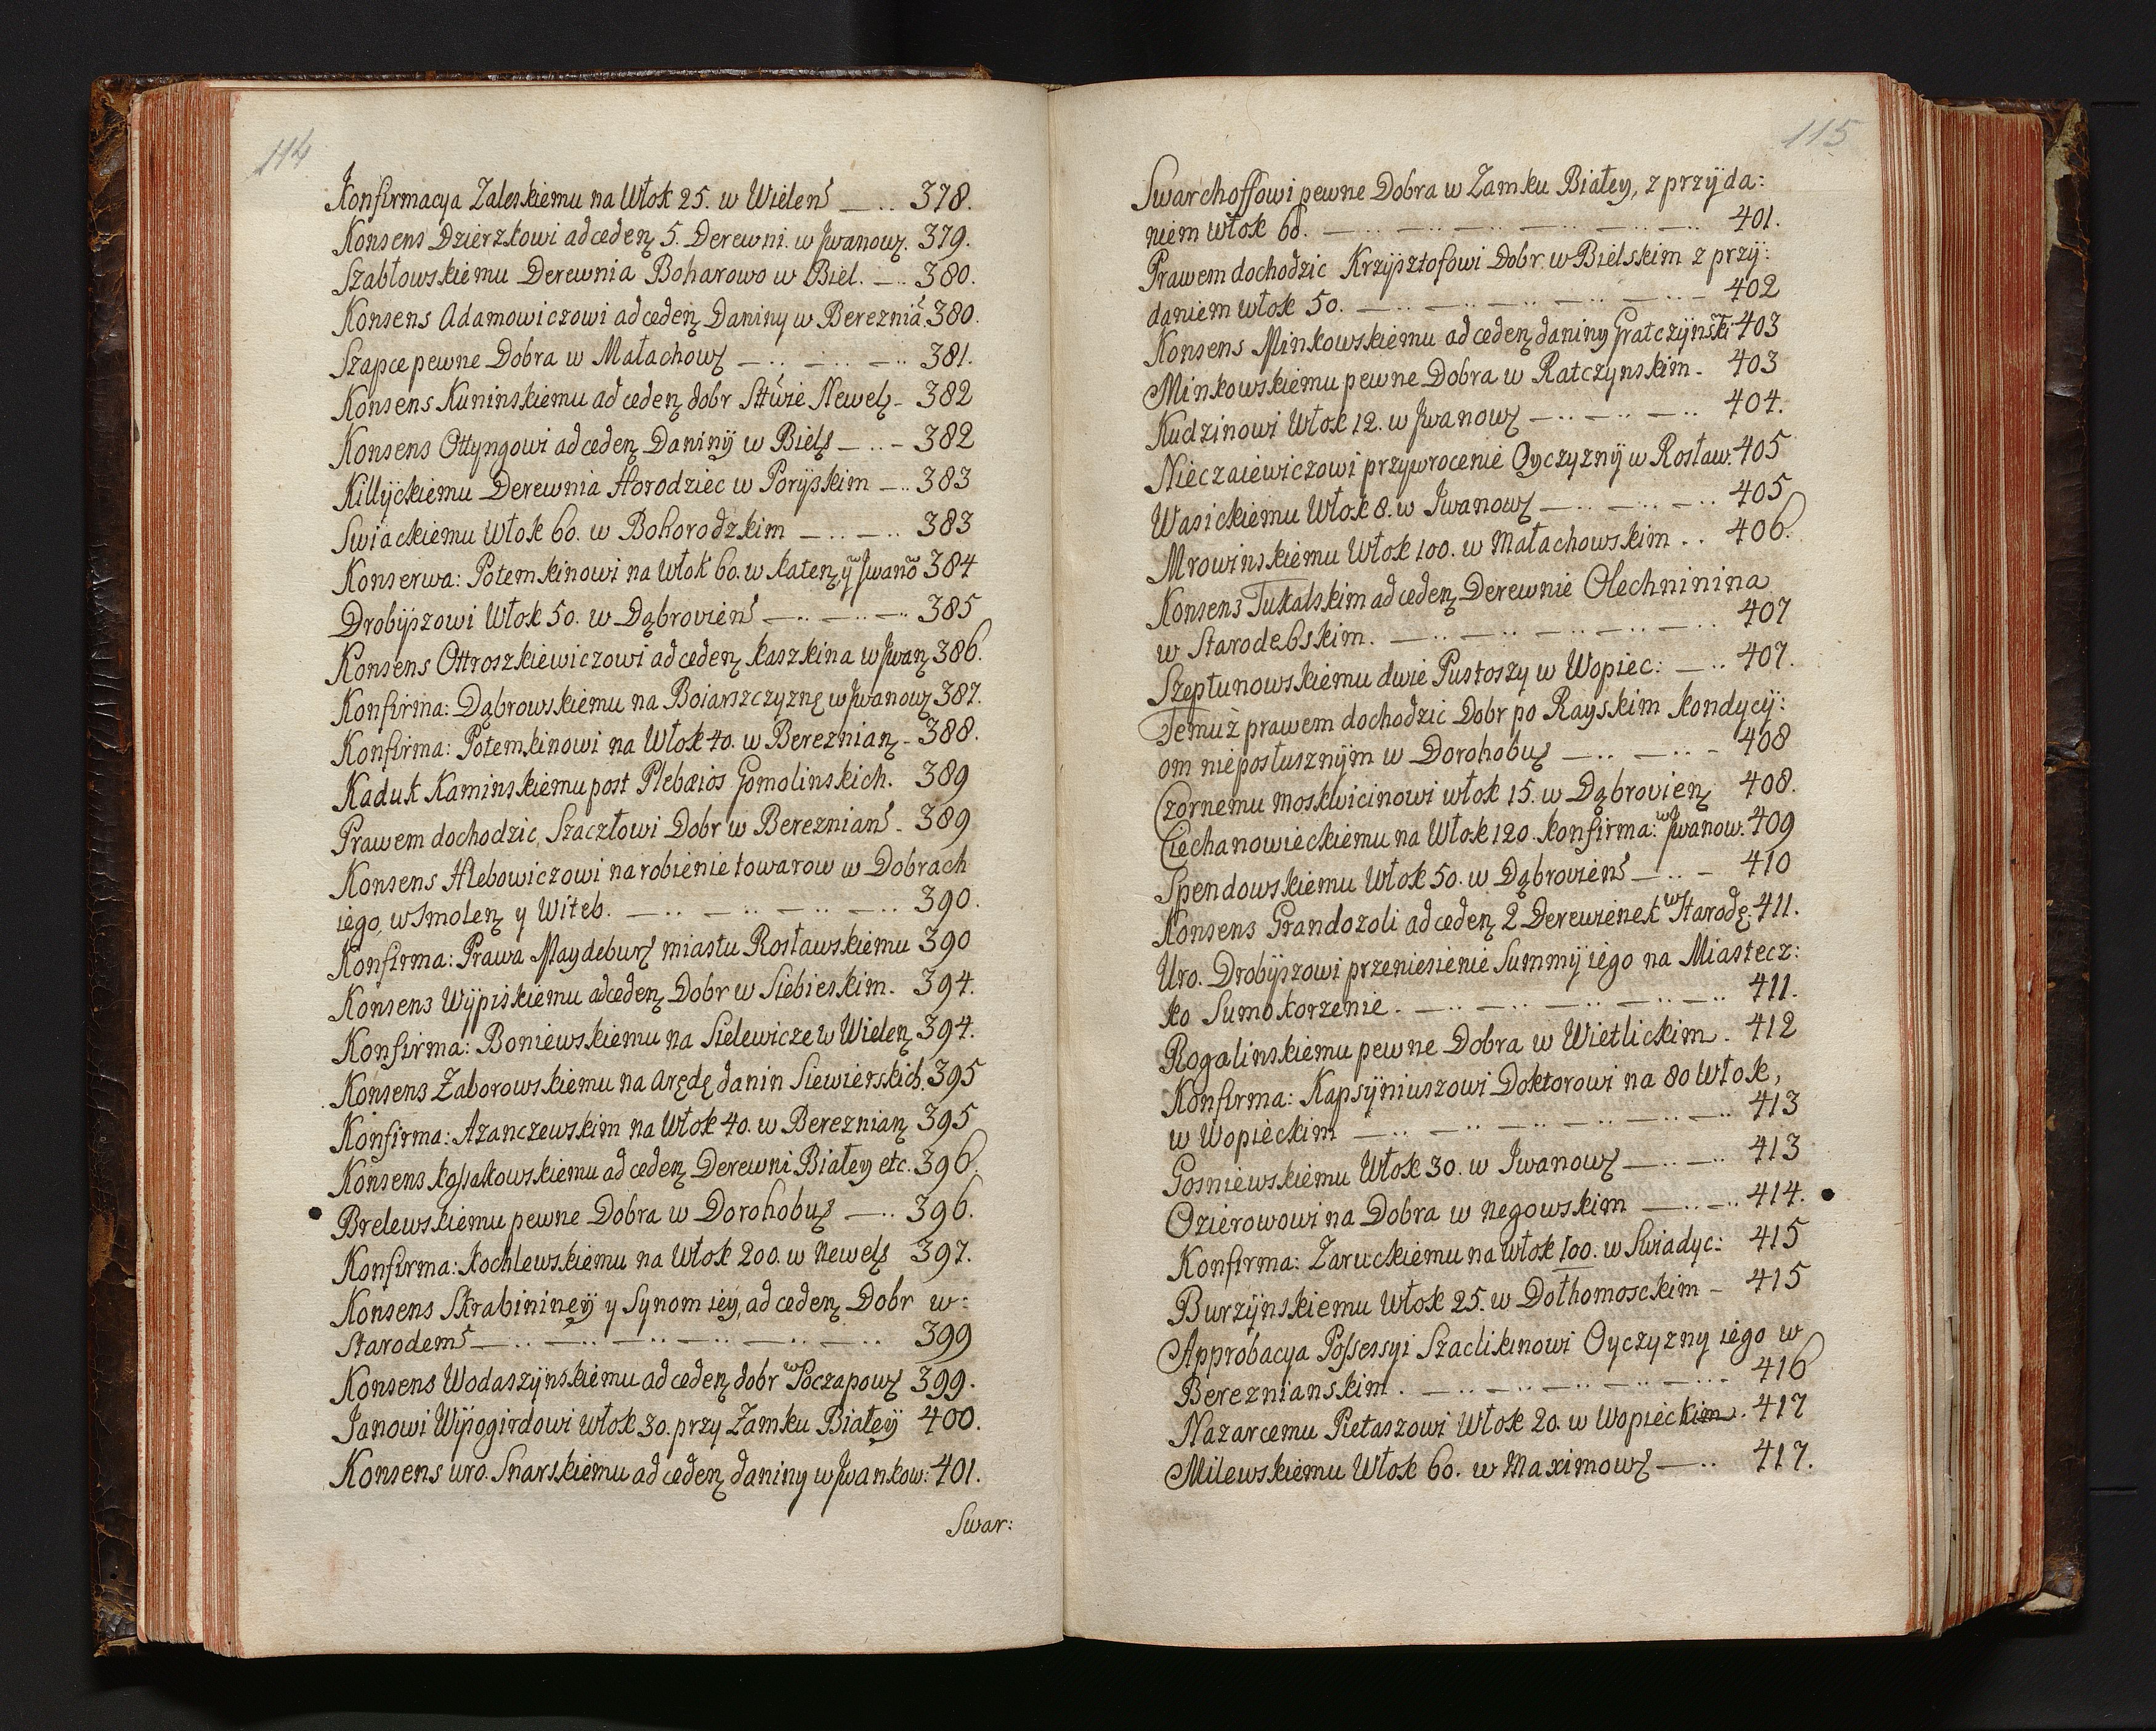 114
Konfirmacya Zaleskiemu na Włok 25. w Wielens — .. 378.
Konsens Dzierzkowi ad cedenz 5. Derewni. w Jwanowz. 379.
Szabłowskiemu Derewnia Boharowo w Biel. — .. 380.
Konsens Adamowiczowi ad cedenz Daniny w Berezniã. 380.
Szapce pewne Dobra w Małachowz — .. — .. — .. 381.
Konsens Kuninskiemu ad cedenz dobr Newelz - 382
Konsens Ottyngowi ad cedenz Daninÿ w Bielz — .. - 382
Killÿckiemu Derewnia Horodziec w Porÿskim — .. 383
Swiackiemu Włok 60. w Bohorodzkim — .. — .. 383
Konserwa: Potemkinowi na Włok 60. w Katenz ÿ w Jwanõ 384
Drobÿszowi Włok 50. w Dąbroviens — .. — .. — .. 385
Konsens Ottroszkiewiczowi ad cedenz Kaszkina w Jwanz 386.
Konfirma: Dąbrowskiemu na Boiarszczyznę w Jwanowz 387.
Konfirma: Potemkinowi na Włok 40. w Bereznianz - 388.
Kaduk Kaminskiemu post Plebæios Gomolinskich. 389
Prawem dochodzic, Szaczłowi Dobr w Bereznians - 389
Konsens Hlebowiczowi na robienie towarow w Dobrach
iego, w Smolenz y Witeb. — .. — .. — .. — .. 390.
Konfirma: Prawa Maydeburz miastu Rosławskiemu 390
Konsens Wÿpiskiemu ad cedenz Dobr w Siebieskim. 394.
Konfirma: Boniewskiemu na Sielewicze w Wielenz 394.
Konsens Zaborowskiemu na Arędę danin Siewierskich. 395
Konfirma: Azanczewskim na Włok 40. w Bereznianz 395
Konsens Kossakowskiemu ad cedenz Derewni Białey etc. 396.
Brelewskiemu pewne Dobra w Dorohobuz — .. 396.
Konfirma: Kochlewskiemu na Włok 200. w Newelz 397.
Konsens Skrabininęÿ y Synom ieÿ, ad cedenz Dobr w:
Starodems — .. — .. — .. — .. — .. — .. 399
Konsens Wodaszÿnskiemu ad cedenz dobr w Poczapowz 399.
Janowi Wÿpogirdowi włok 30. przy Zamku Białeÿ 400.
Konsens uro. Snarskiemu ad cedenz daniny w Jwankow: 401.
Swar:
115
Swarchoffowi pewne Dobra w Zamku Białey, z przÿda:
niem włok 60. — .. — .. — .. — .. — .. — .. 401.
Prawem dochodzic Krzÿsztofowi Dobr. w Bielskim z przÿ:
daniem włok 50. — .. — .. — .. — .. — .. - 402
Konsens Minkowskiemu ad cedenz daniny Gratczÿnski 403
Minkowskiemu pewne Dobra w Ratczynskim - 403
Kudzinowi Włok 12. w Jwanowz — .. — .. — .. 404.
Nieczaiewiczowi przywrocenie Oyczyznÿ w Rosław. 405
Wasickiemu Włok 8. w Jwanowz — .. — .. — .. 405
Mrowinskiemu Włok 100. w Małachowskim .. 406.
Konsens Tukalskim ad cedenz Derewnie Olechninina
w Starodebskim. — .. — .. — .. — .. — .. 407
Szeptunowskiemu dwie Pustoszy w Wopiec: — .. 407.
Temuż prawem dochodzic Dobr po Rayskim kondycÿ:
om nieposłusznÿm w Dorohobuz — .. — .. - 408
Czornemu moskwicinowi włok 15. w Dąbrovienz 408.
Ciechanowieckiemu na Włok 120. Konfirma: w Jwanow. 409
Spendowskiemu Włok 50. w Dąbroviens — .. - 410
Konsens Grandozoli ad cedenz 2 Derewienek w Starodę. 411.
Uro. Drobÿszowi przeniesienie Summÿ iego na Miastecz:
ko Sumokorzenie. — .. — .. — .. — .. — .. 411.
Rogalinskiemu pewne Dobra w Wietlickim. 412
Konfirma: Kapsÿniuszowi Doktorowi na 80 Włok,
w Wopieckim — .. — .. — .. — .. — .. — .. 413
Gosniewskiemu Włok 30. w Jwanowz — .. — .. 413
Ozierowowi na Dobra w Negowskim — .. — .. 414.
Konfirma: Zaruckiemu na Włok 100. w Swiadyc: 415
Burzÿnskiemu Włok 25. w Dołhomosckim - 415
Approbacya Possessyi Szaclikinowi Oyczyzny iego w
Bereznianskim. — .. — .. — .. — .. — .. - 416
Nazarcemu Pietaszowi Włok 20. w Wopieckim. 417
Milewskiemu Włok 60. w Maximowz — .. 417.